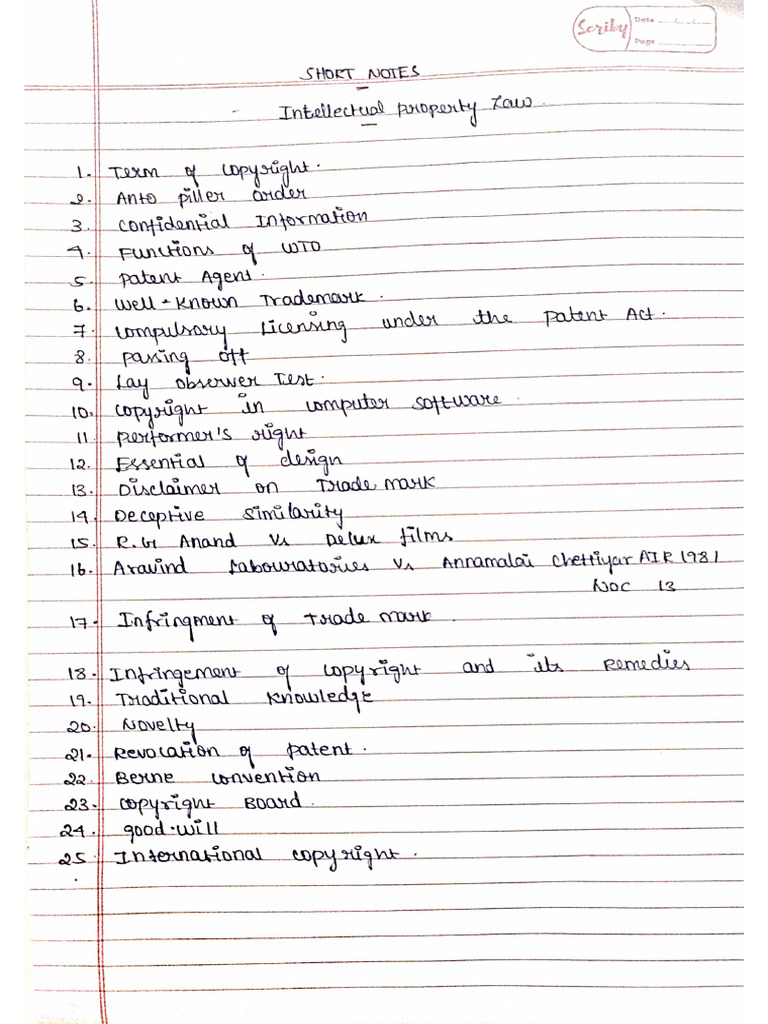 Scriby Date
Page
SHORT NOTES
- Intellectual Property Law.
1. Term of copyright.
2. Anto piller order
3. Confidential Information
4. Functions of WTO
5. Patent Agent.
6. Well-Known Trademark.
7. Compulsary Licensing under the Patent Act.
8. Passing off
9. Lay observer Test.
10. Copyright in computer software.
11 Performer's right
12. Essential of design
13. Disclaimer on Trade mark
14. Deceptive similarity
15. R.G Anand Vs Delux films
16. Aravind Labouratories Vs Annamalai Chettiyar AIR 1981
NOC 13
17. Infringment of Trade mark.
18. Infringement of copyright and its Remedies
19. Traditional Knowledge
20. Novelty
21. Revocation of Patent.
22. Berne Convention
23. Copyright Board.
24. good-will
25 International copyright.